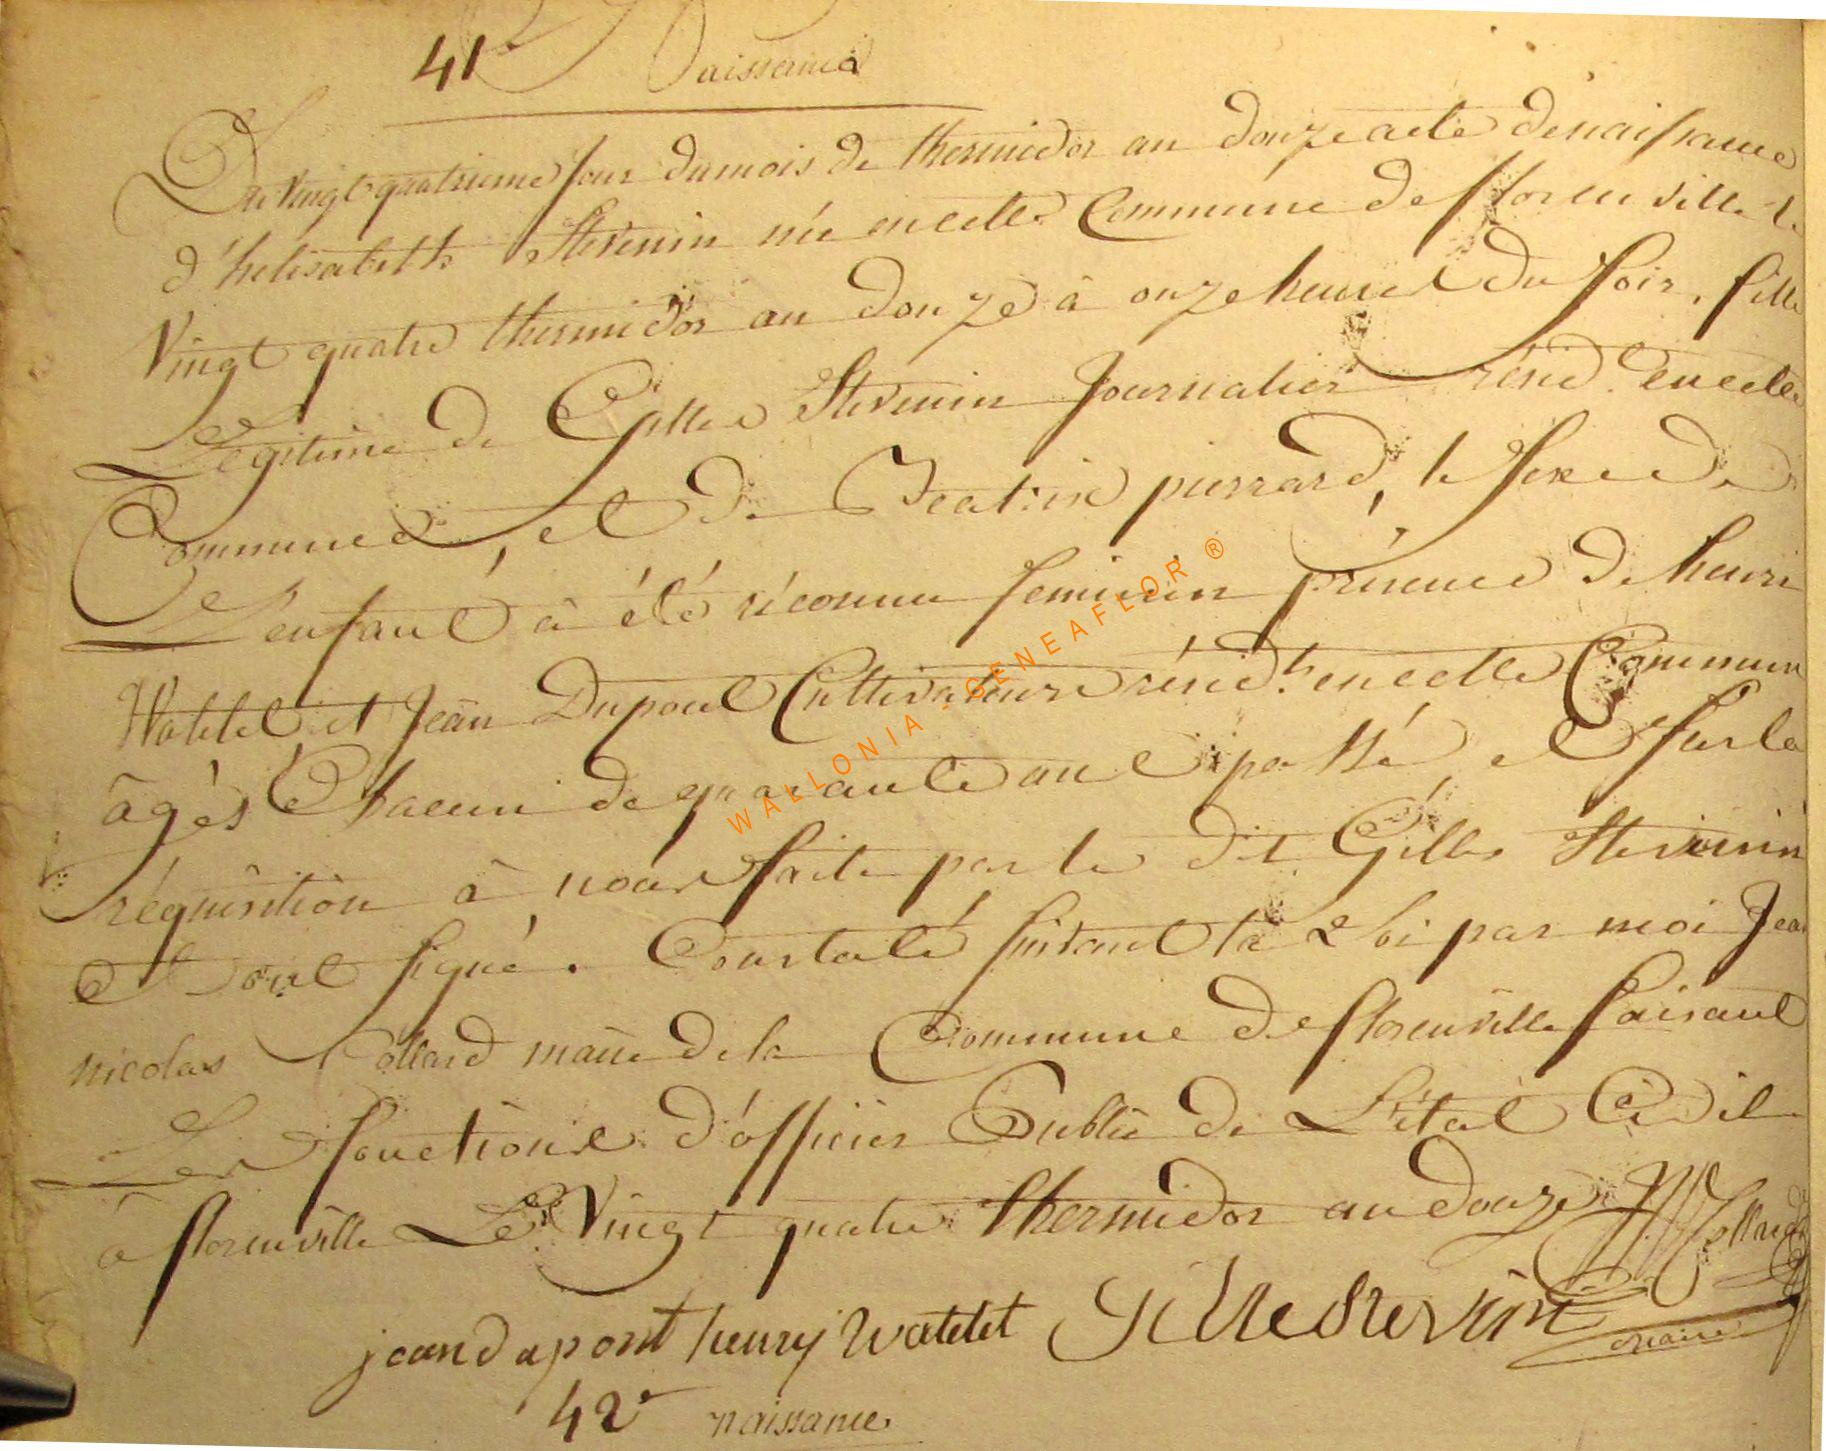 41e Naissance
Du vingt quatrieme jour du mois de thermidor an douze acte de naissance
d'helisabeth Stevenin née en cette Commune de florenville le
Vingt quatre thermidor an douze à onze heures du soir, fille
Légitime de Gille Stevenin Journalier résid. en cette
Commune, et de Beatrix pierrard, le sexe de
L'enfant à été réconnu feminin présence de henri
Watelet et Jean Dupont Cultivateurs résidt. en cette Commune
âgés Chacun de quarante ans passé, et sur la
réquisition à nous faite par le dit Gilles Stevenin
Et ont signé. Constaté suivant la Loi par moi Jean
nicolas Collard maire de la Commune de florenville faisant
Les fonctions d'officier Public de L'état Civil
à florenville Le Vingt quatre thermidor an douze. JN Collard
jean dupont henry watelet Gille Stevenin maire
42e naissance
WALLONIA - GENEAFLOR ®